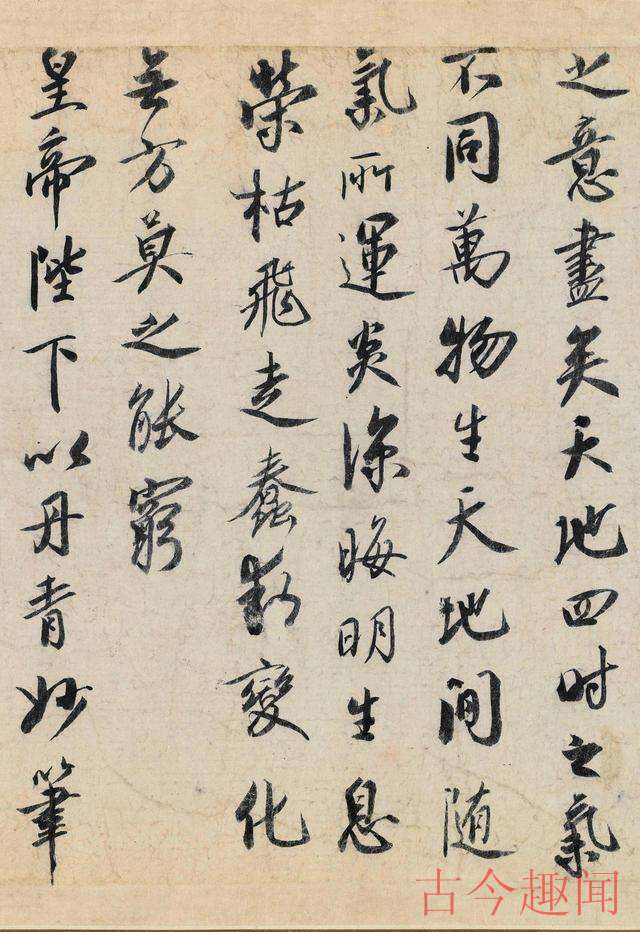 之意盡矣天地四时之氣
不同萬物生天地間随
氣所運炎涼晦明生息
榮枯飛走蠢動變化
無方莫之能窮
皇帝陛下以丹青妙筆
古今趣闻